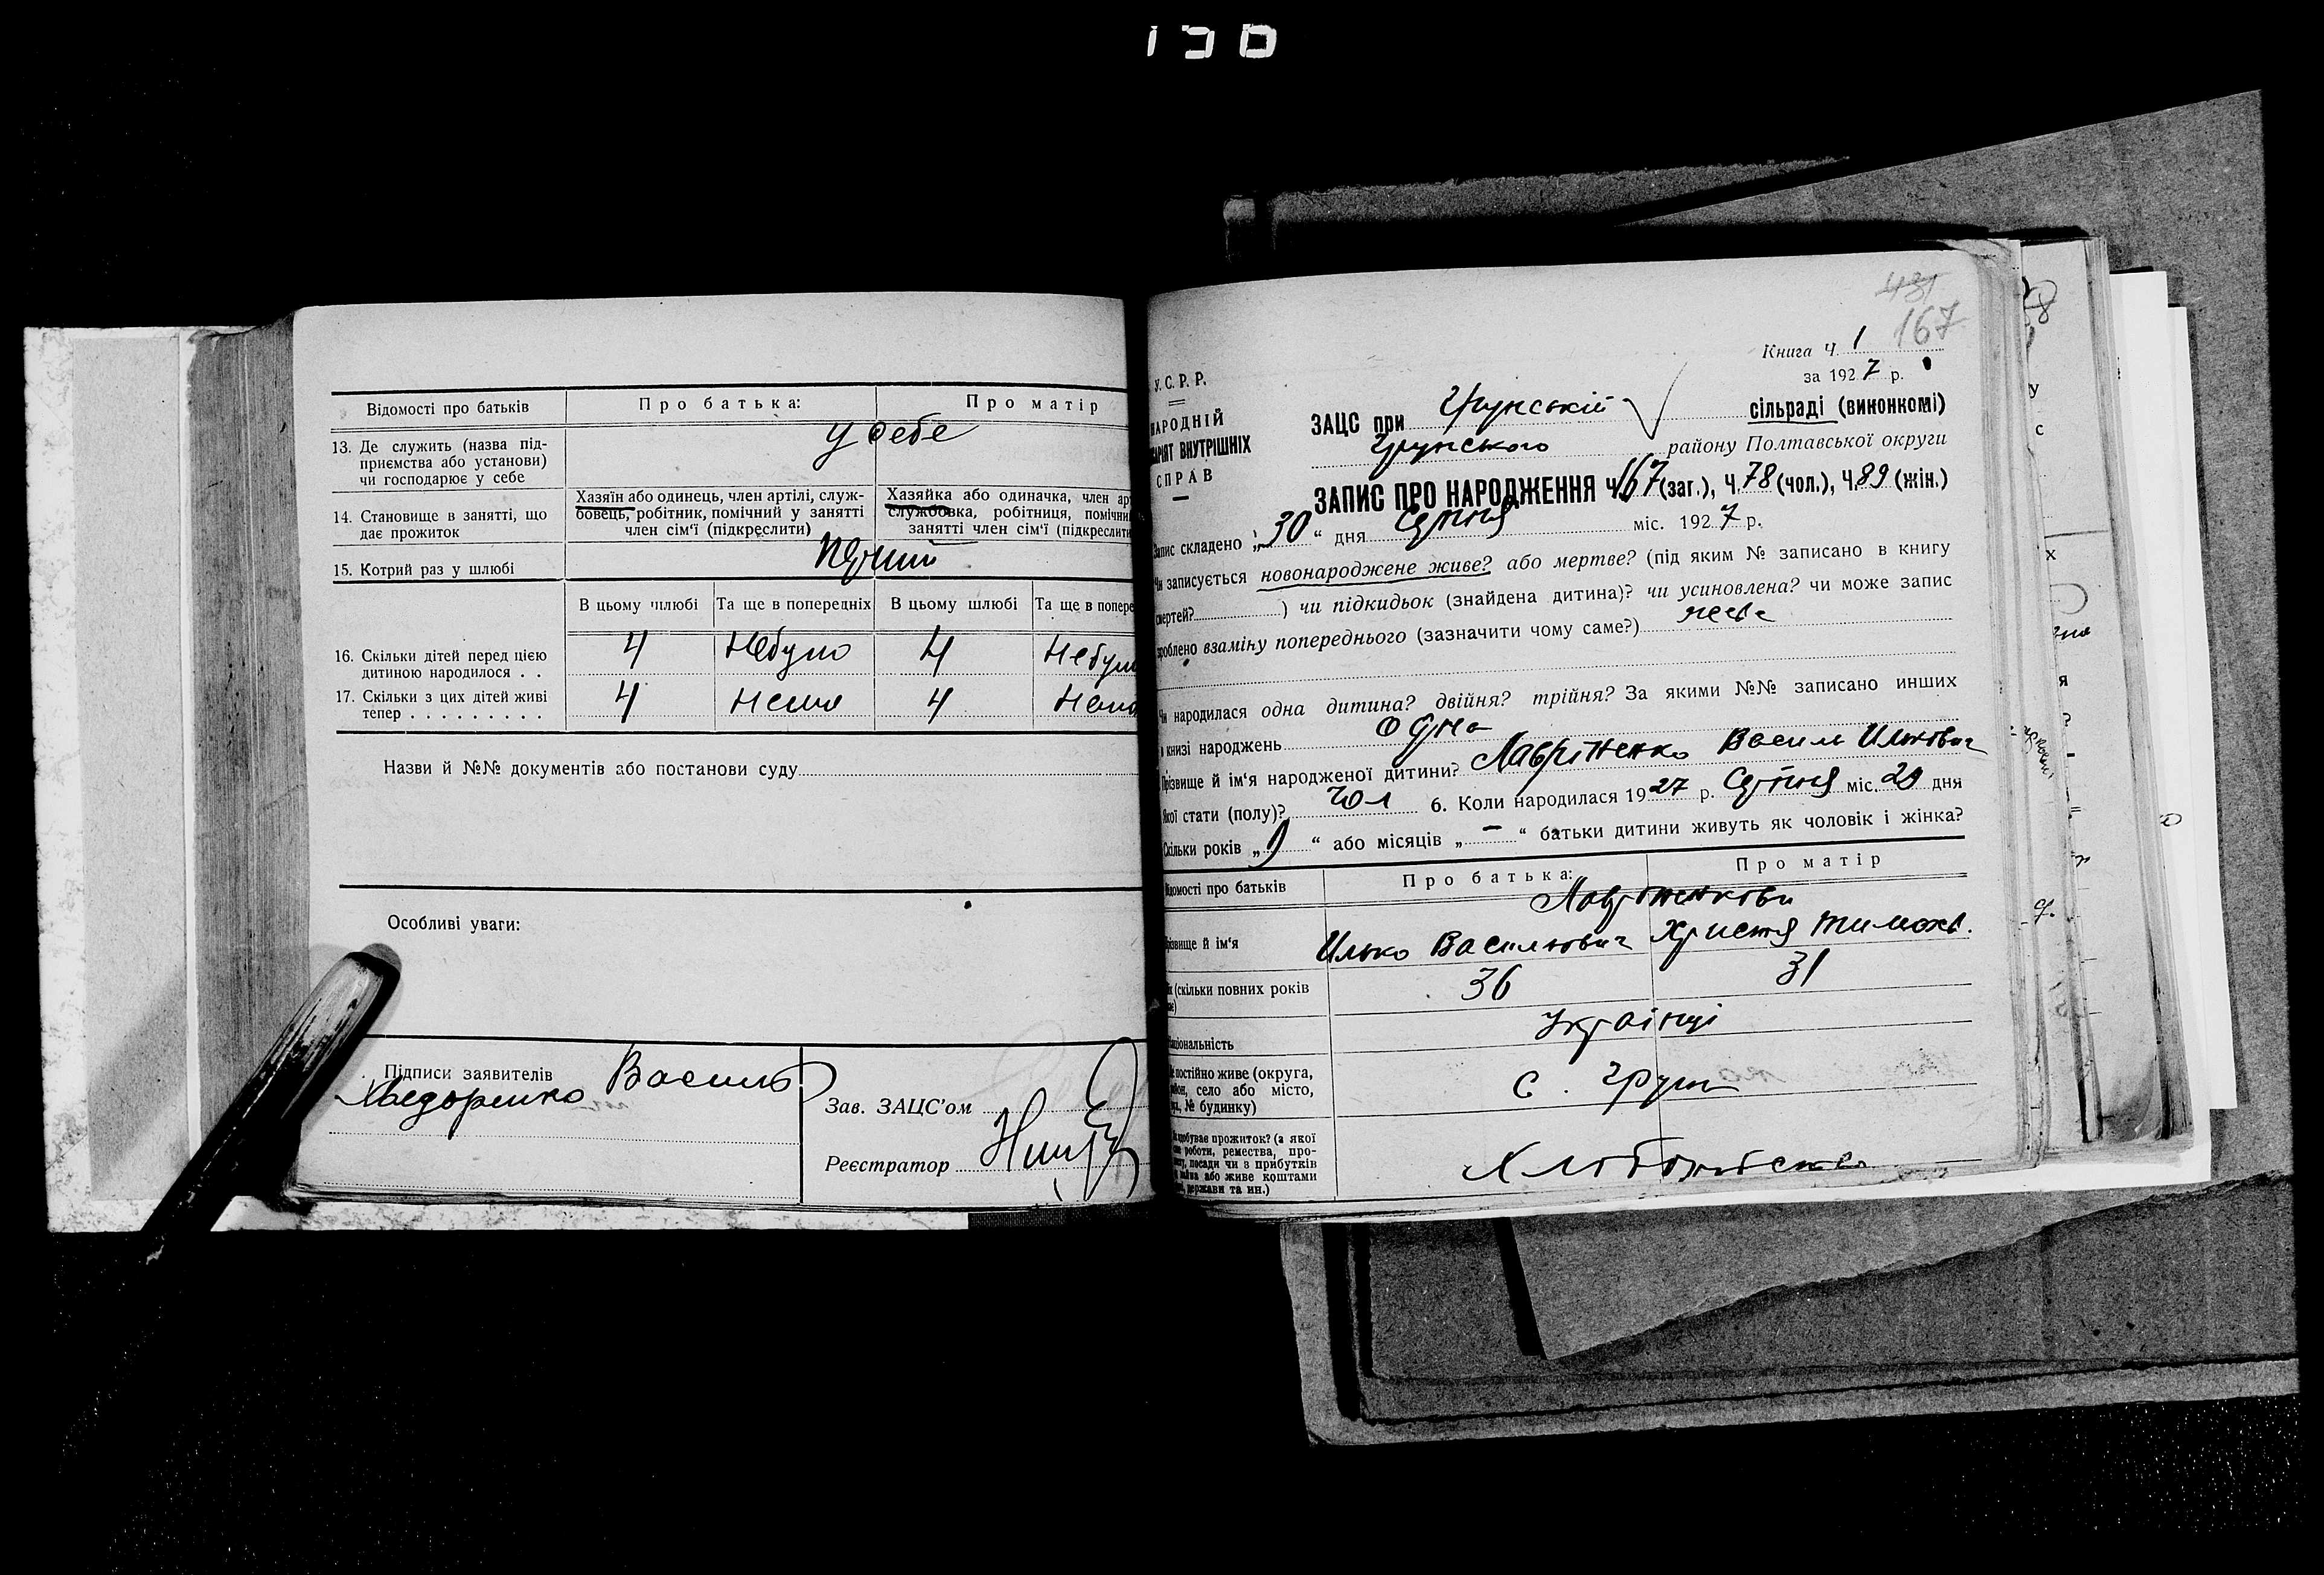 Відомості про батьків
Про батька:
Про матір
13. Де служить (назва під-
приємства або установи)
чи господарює у себе
у себе
14. Становище в занятті, що
дає прожиток
Хазяїн або одинець, член артілі, служ-
бовець, робітник, помічний у занятті
член сім'ї (підкреслити)
Хазяйка або одиначка, член арт
службовка, робітниця, помічни
занятті член сім'ї (підкреслити
15. Котрий раз у шлюбі
перший
В цьому шлюбі
Та ще в попередніх
В цьому шлюбі
Та ще в попере
16. Скільки дітей перед цією
дитиною народилося . .
4 Небуло 4 Небул
17. Скільки з цих дітей живі
тепер . . . . . . . . .
4 Нема 4 Нема
Назви й №№ документів або постанови суду
Особливі уваги:
Підписи заявителів
Василь
Зав. ЗАЦС'ом
Реєстратор
431
167
Книга Ч. 1
за 1927 р.
У. С. Р. Р.
НАРОДНІЙ
АРІЯТ ВНУТРІШНІХ
СПРАВ
ЗАЦС при Грунській сільраді (виконкомі)
Грунського району Полтавської округи
ЗАПИС ПРО НАРОДЖЕННЯ Ч. 167 (заг.), Ч. 78 (чол.), Ч. 89 (жін.)
Запис складено „30" дня Серпня міс. 1927 р.
Чи записується новонароджене живе? або мертве? (під яким № записано в книгу
смертей? ) чи підкидьок (знайдена дитина)? чи усиновлена? чи може запис
зроблено взаміну попереднього (зазначити чому саме?)
Чи народилася одна дитина? двійня? трійня? За якими №№ записано инших
в книзі народжень одна
Прізвище й ім'я народженої дитини? Лавріненко Василь Илькович
Якої стати (полу)? чол 6. Коли народилася 1927 р. Серпня міс. 29 дня
Скільки років „9" або місяців „–" батьки дитини живуть як чоловік і жінка?
Відомості про батьків
Про батька:
Про матір
Лавріненкови
Прізвище й ім'я
Илько Василькович Христя Тимохв.
Вік (скільки повних років
має)
36 31
Національність
Українці
Де постійно живе (округа,
район, село або місто,
вул., № будинку)
с. Грунь
Як здобуває прожиток? (з якої
саме роботи, ремества, про-
мислу, посади чи з прибутків
з майна або живе коштами
держави та ин.)
Хліборобство